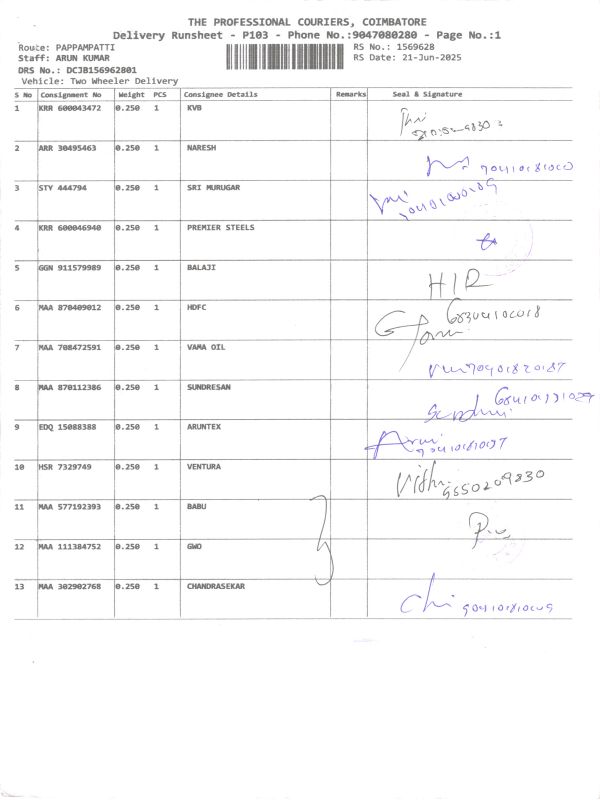 THE PROFESSIONAL COURIERS, COIMBATORE
Delivery Runsheet - P103 - Phone No.:9047080280 - Page No.:1
Route: PAPPAMPATTI RS No.: 1569628
Staff: ARUN KUMAR RS Date: 21-Jun-2025
DRS No.: DCJB156962801
Vehicle: Two Wheeler Delivery
S No Consignment No Weight PCS Consignee Details Remarks Seal & Signature
1 KRR 600043472 0.250 1 KVB
2 ARR 30495463 0.250 1 NARESH
3 STY 444794 0.250 1 SRI MURUGAR
4 KRR 600046940 0.250 1 PREMIER STEELS
5 GGN 911579989 0.250 1 BALAJI
HIR
6 MAA 870409012 0.250 1 HDFC
7 MAA 708472591 0.250 1 VAMA OIL
8 MAA 870112386 0.250 1 SUNDRESAN
9 EDQ 15088388 0.250 1 ARUNTEX
10 HSR 7329749 0.250 1 VENTURA
9550209830
11 MAA 577192393 0.250 1 BABU
12 MAA 111384752 0.250 1 GWO
13 MAA 302902768 0.250 1 CHANDRASEKAR